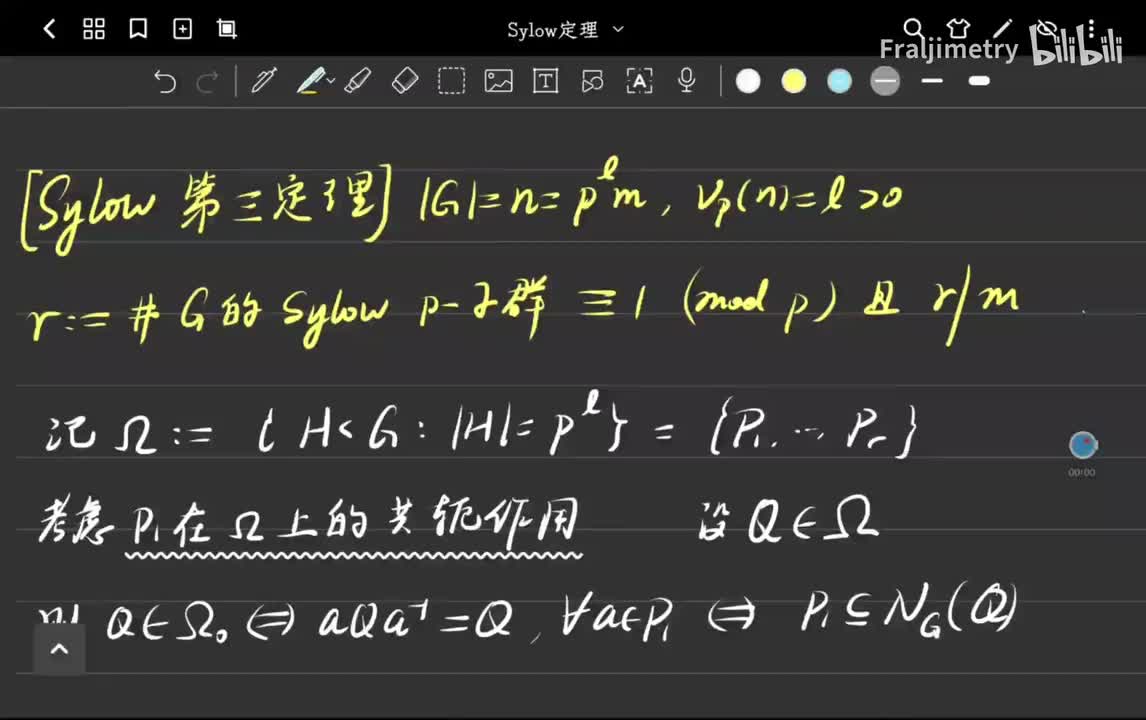 Sylow定理
Fraljimetry bilibili
[Sylow 第三定理] |G|=n=p^l m, v_p(n)=l>0
r:=# G的Sylow p-子群 ≡1 (mod p) 且 r|m
记 Ω:= { H<G : |H|=p^l } = {P₁, ⋯, P_r}
00:00
考虑 P₁在Ω上的共轭作用 设 Q∈Ω
则 Q∈Ω₀ ⇔ aQa⁻¹=Q, ∀a∈P₁ ⇔ P₁⊆N_G(Q)